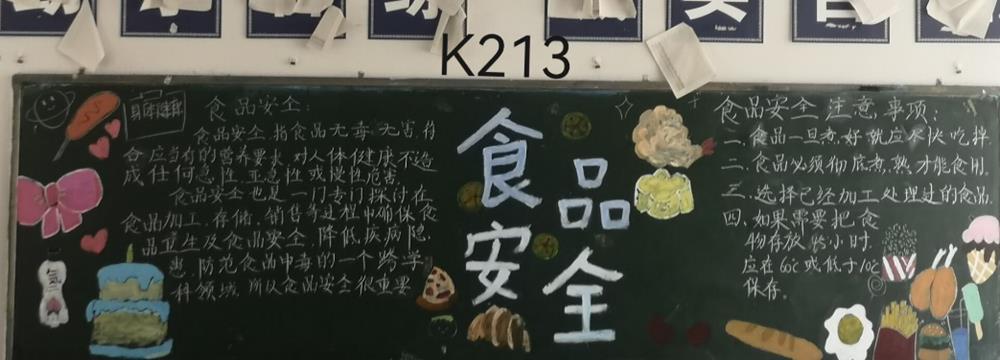 K213
身体健康
食品安全:
食品安全指食品无毒、无害,符
合应当有的营养要求,对人体健康不造
成任何急性、亚急性或慢性危害。
食品安全也是一门专门探讨在
食品加工、存储、销售等过程中确保食
品卫生及食品安全,降低疾病隐
患,防范食品中毒的一个跨学
科领域,所以食品安全很重要
食品
安全
食品安全注意事项:
一、食品一旦煮好就应尽快吃掉
二、食品必须彻底煮熟才能食用
三、选择已经加工处理过的食品
四、如果需要把食
物存放 小时,
应在60c或低于10c
保存。